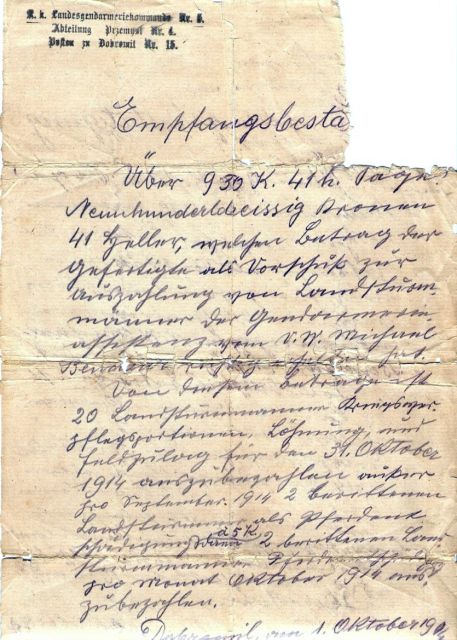 K. k. Landesgendarmeriekommando Nr. 5.
Abteilung Przemyśl Nr. 4.
Posten zu Dobromil Nr. 15.
Empfangsbestä
Über 930 K. 41 h. Sage:
Neunhundertdreissig Kronen
41 Heller, welchen Betrag der
Gefertigte als Vorschuß zur
Auszahlung von Landsturm-
männer der Gendarmerie
assistenz vom V. W. Michael
richtig erhalten hat.
Von diesem Betrage ist
20 Landsturmmänner Kriegsver-
pflegsportionen, Löhnung, und
Feldzulag für den 31. Oktober
1914 auszubezahlen außer
pro September 1914 2 berittenen
Landsturmm als Pferdent
schädigung à 5 K 2 berittenen Lan
sturmmänner
pro Monat Oktober 1914 aus
zubezahlen.
Dobromil, am 1. Oktober 19